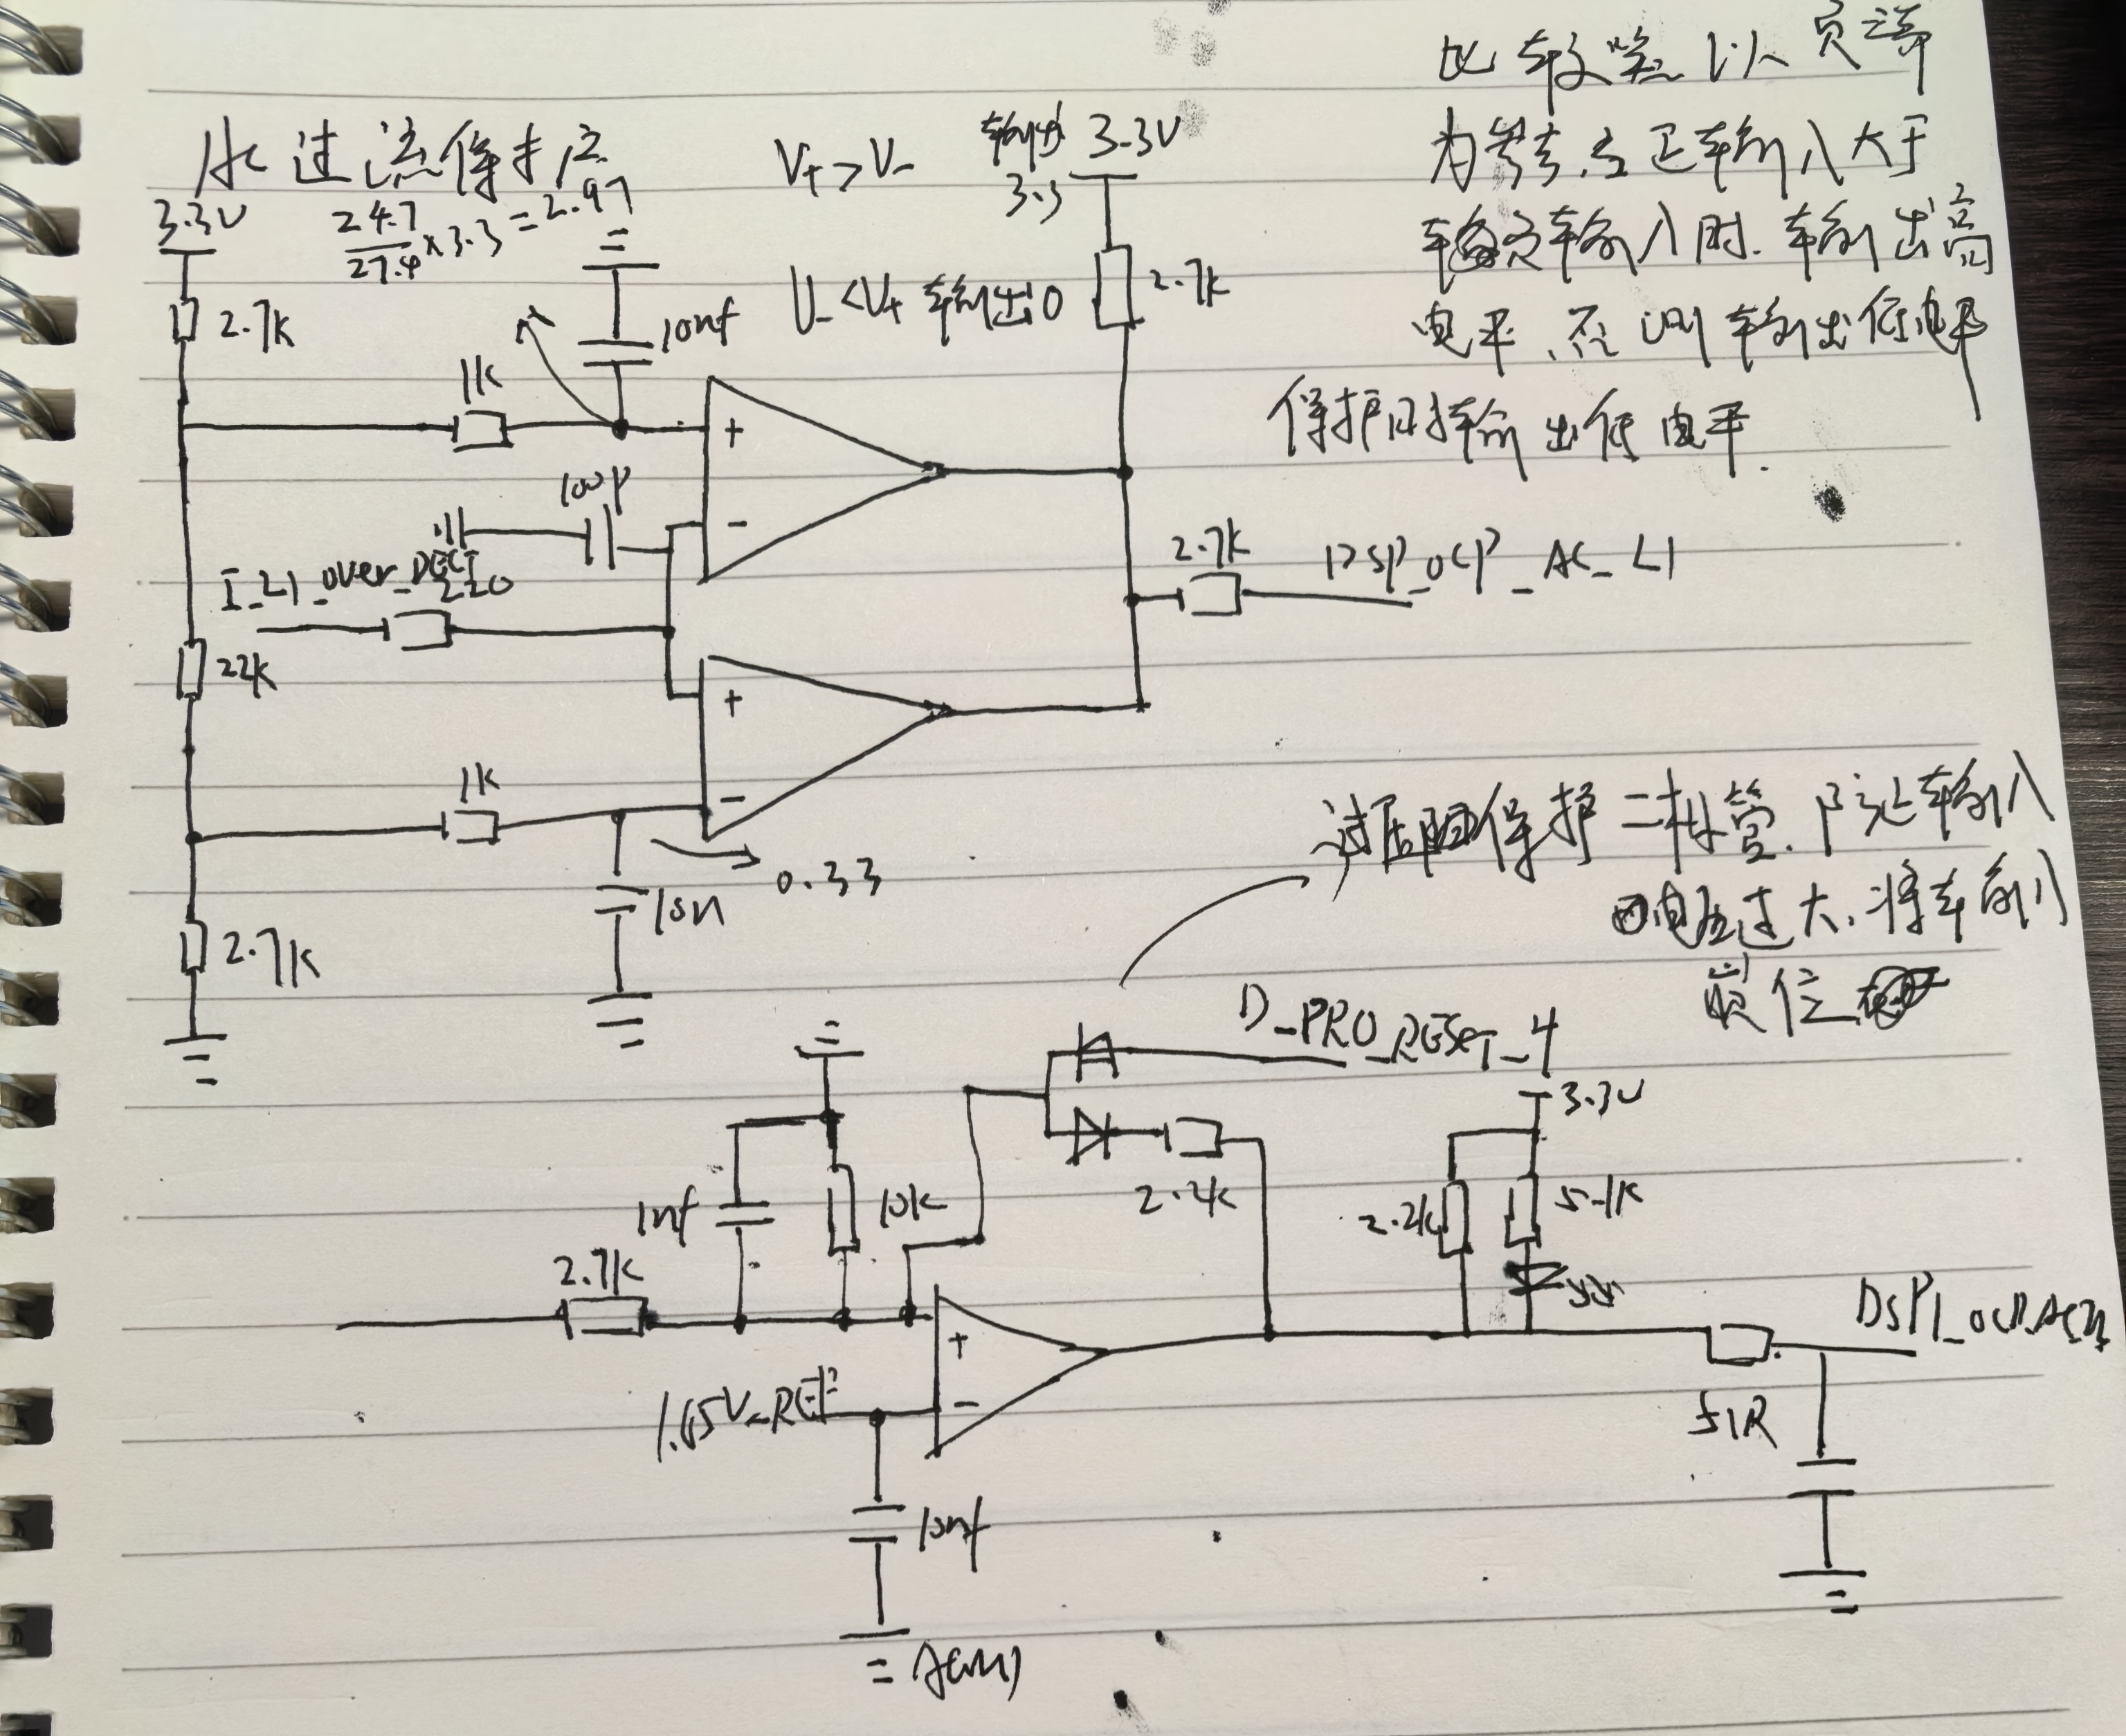 AC 过流保护
3.3V
24.7/27.4 × 3.3 = 2.97
V+ > V- 输出
3.3
3.3V
U- < V+ 输出0
2.7K
2.7K
10nf
1K
比较器以负端
为参考,当正输入大于
负输入时.输出高
电平,否则输出低电平
保护时输出低电平.
100p
I_L1_over_DECT
220
2.7K
DSP_OCP_AC_L1
22K
1K
0.33
10n
2.7K
过压保护二极管.防止输入
电压过大.将输入
钳位
D_PRO_RESET_4
3.3V
2.2K
1nf
10K
2.2K
5.1K
2.7K
1.65V_REF
51R
10nf